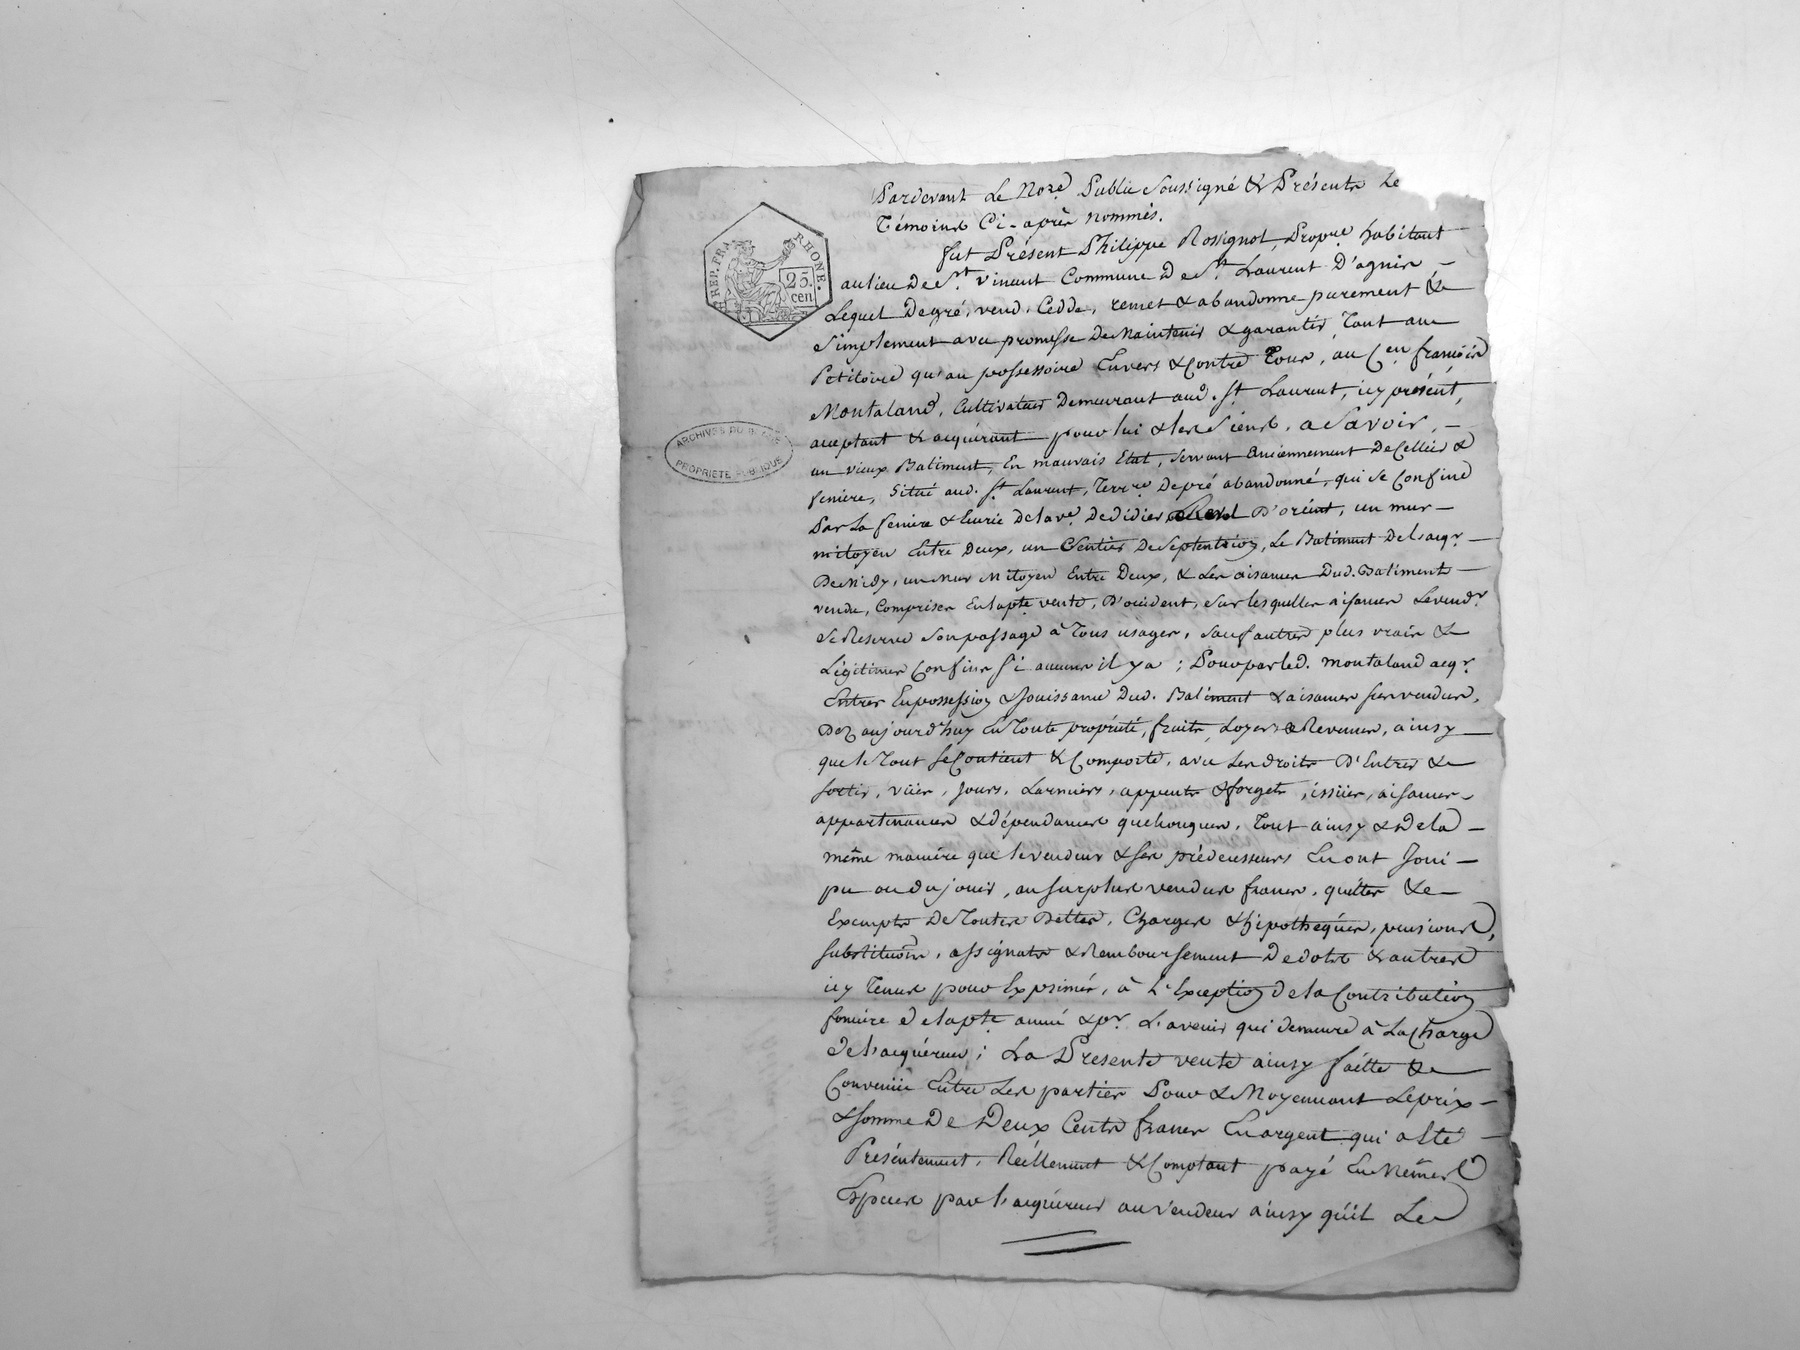 Pardevant Le No.re Public Soussigné & Présents Le
Témoins Ci-après nommés.
fut Présent Philippe Rossignol, Propre. habitant
au lieu De St. Vincent Commune De St. Laurent D'agnis –
Lequel Degré, vend, Cedde, remet & abandonne purement &
Simplement avec promesse De Maintenir & garantir Tant au
Petitoire qu'au possessoire Envers & Contre Tous, au Cen. françois
Montaland, Cultivateur Demeurant aud. St Laurent, icy présent,
acceptant & acquérant pour lui & les Siens, a Savoir, –
un vieux Batiment, En mauvais Etat, Servant Anciennement De Cellier &
feniere, Situé aud. St. Laurent, Terrre. De pré abandonné, qui se Confine
Par La feniere & Ecurie De la ve. De didier D'orient, un mur –
mitoyen Entre Deux, un Sentier De Septentrion, Le Batiment De l'acqr. –
De Midy, un Mur Mitoyen Entre Deux, & Les aisances Dud. Batiment –
vendu, Comprises En la pte. vente, D'occident, Sur lesquelles aisances Le vendr.
Se Reserve Son passage à Tous usages, Sauf autres plus vrais &
Légitimes Confins Si aucuns il y a ; Pour par led. montaland acqr.
Entrer En possession & Jouissance Dud. Batiment & aisances Sus vendus,
Dez aujourd'huy En Toute propriété, fruits, Loyers & Revenus, ainsy
que le Tout se Contient & Comporte, avec Les droits D'Entrer &
Sortir, vües, Jours, Larmiers, appents & forgets, issües, aisances –
appartenances & dépendances quelconques, Tout ainsy & De la –
même manière que le vendeur & Ses prédécesseurs En ont Joui –
pu ou du jouir, au Surplus vendus francs, quittes &
Exempts De Toutes Dettes, Charges & hipothéques, pensions,
Substitutions, assignats & Remboursement De dots & autres
icy Tenus pour Exprimés, à L'Exception De la Contribution
fonciere De la pte. année & pr. L'avenir qui demeure à La Charge
De l'acquéreur ; La Presente vente ainsy faitte &
Convenüe Entre Les parties Pour & Moyennant Le prix –
& Somme De Deux Cents francs En argent qui a Eté –
Présentement, Réellement & Comptant payé En Mêmes
Especes par l'acquéreur au vendeur ainsy qu'il Le
REP. FRA.
RHONE.
25.
cen
ARCHIVES DU RHONE
PROPRIETE PUBLIQUE